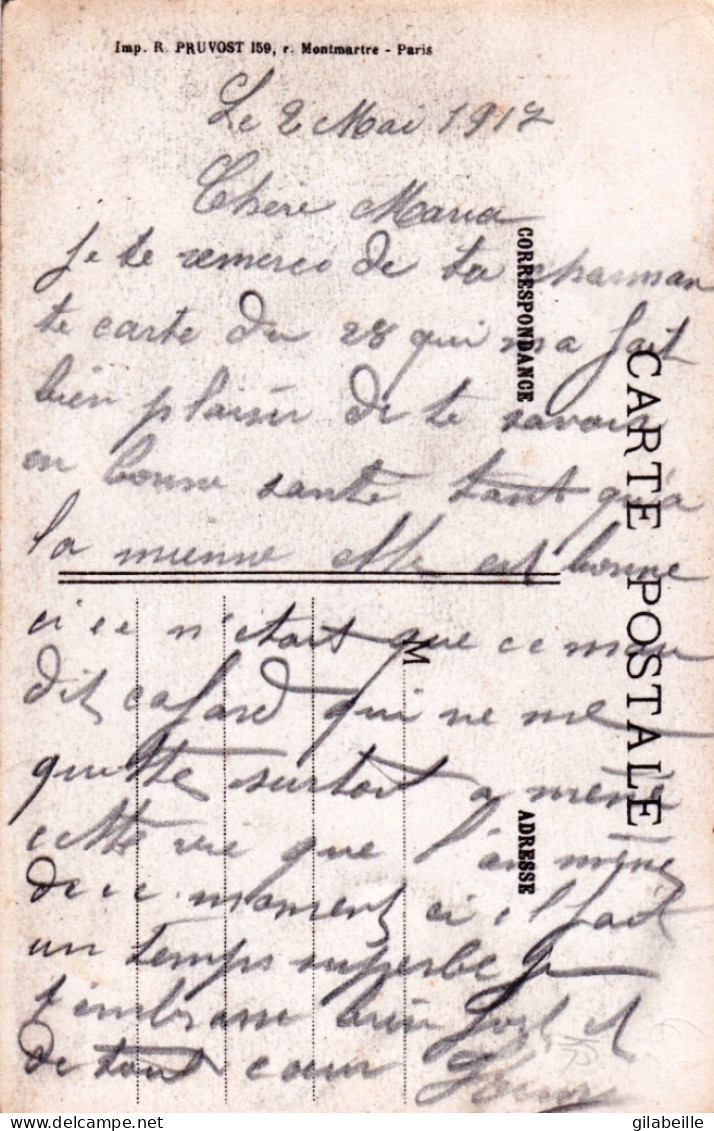 Imp. R. PRUVOST 159, r. Montmartre - Paris
Le 2 Mai 1917
Chère Maria
je te remerci de ta charman
te carte du 28 qui ma fait
bien plaisir de te savoir
en bonne santé tant qu'a
la mienne elle est bonne
ci ce n'était que ce mau
dit cafard qui ne me
quitte surtout a mené
cette vie que l'an mène
de ce moment ci il fait
un temps superbe je
t'embrasse bien fort et
de tout cœur
CORRESPONDANCE
CARTE POSTALE
M
ADRESSE
delcampe.net
gilabeille